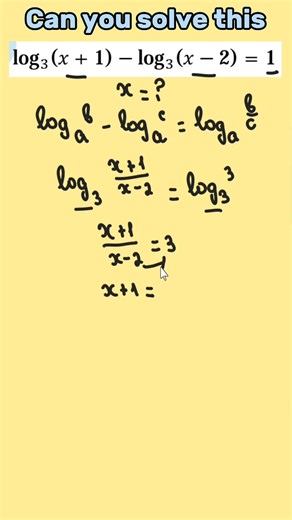 Can you solve this
log₃(x + 1) − log₃(x − 2) = 1
x = ?
logₐ b - logₐ c = logₐ b/c
log₃ (x+1)/(x-2) = log₃ 3
(x+1)/(x-2) = 3
x+1 =